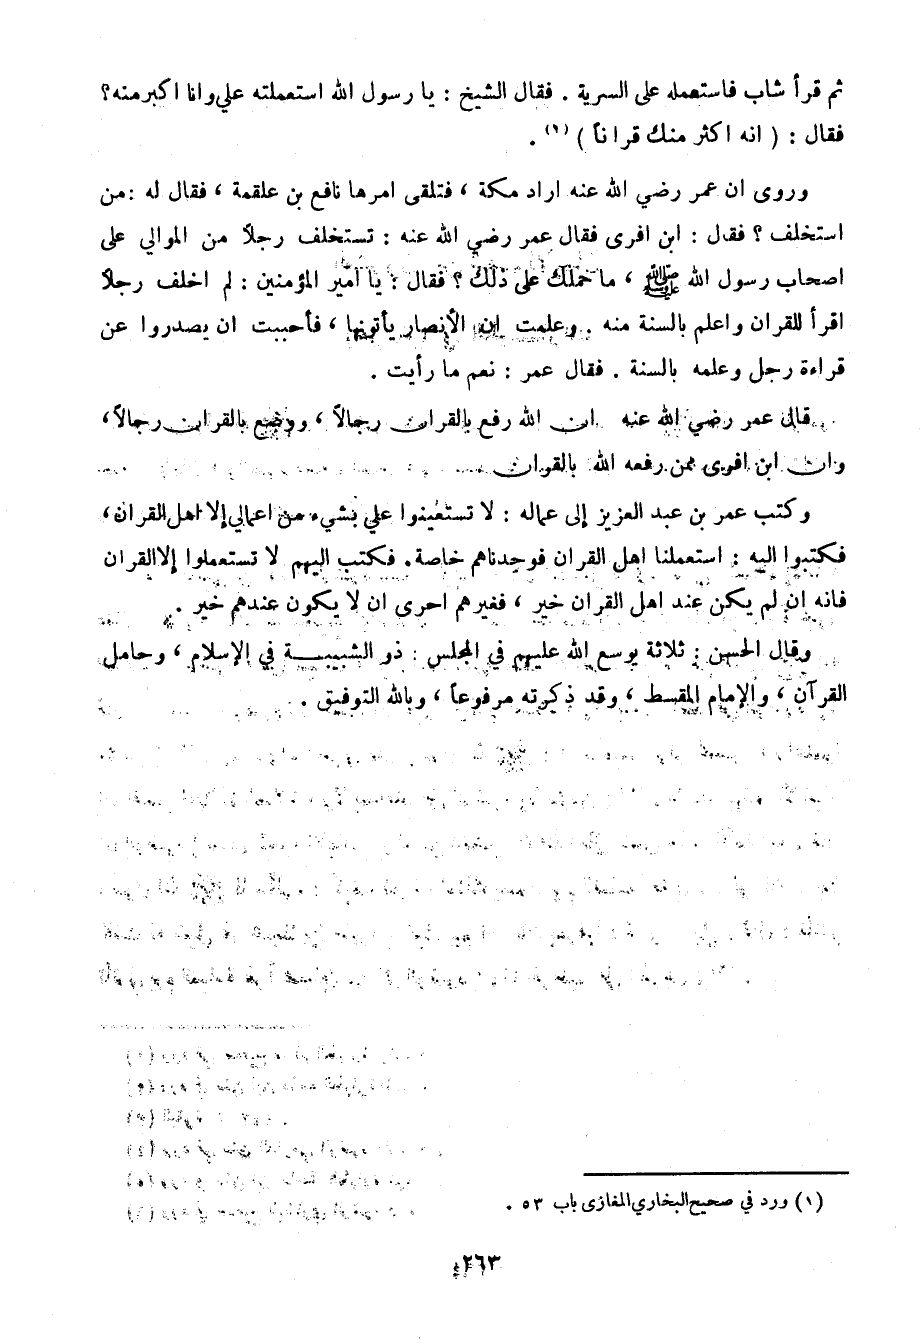 ثم قرأ شاب فاستعمله على السرية . فقال الشيخ : يا رسول الله استعملته علي وانا اكبر منه؟
فقال : ( انه اكثر منك قراناً ) (١) .
وروى ان عمر رضي الله عنه اراد مكة ، فتلقى امرها نافع بن علقمة ، فقال له : من
استخلف ؟ فقال : ابن افرى فقال عمر رضي الله عنه : تستخلف رجلاً من الموالي على
اصحاب رسول الله ﷺ ، ما حملك على ذلك ؟ فقال : يا امير المؤمنين : لم اخلف رجلاً
اقرأ للقران واعلم بالسنة منه . وعلمت ان الأنصار يأتونها ، فأحببت ان يصدروا عن
قراءة رجل وعلمه بالسنة . فقال عمر : نعم ما رأيت .
قال عمر رضي الله عنه ان الله رفع بالقران رجالاً ، ووضع بالقران رجالاً ،
وان ابن افرى ممن رفعه الله بالقران
وكتب عمر بن عبد العزيز إلى عماله : لا تستعينوا علي بشيء من اعمالي إلا اهل القران ،
فكتبوا اليه : استعملنا اهل القران فوجدناهم خاصة . فكتب اليهم لا تستعملوا إلا القران
فانه ان لم يكن عند اهل القران خير ، فغيرهم احرى ان لا يكون عندهم خير .
وقال الحسن : ثلاثة يوسع الله عليهم في المجلس : ذو الشيبة في الإسلام ، وحامل
القرآن ، والإمام المقسط ، وقد ذكرته مرفوعاً ، وبالله التوفيق .
(١) ورد في صحيح البخاري المغازى باب ٥٣ .
٢٦٣